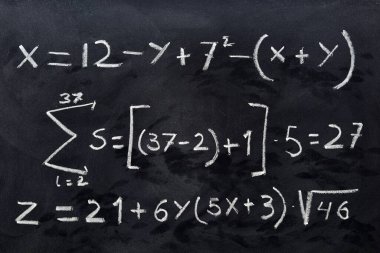 x = 12 - y + 7² - (x + y)
37
∑ S = [(37-2)+1] · 5 = 27
i=2
z = 21 + 6y(5x+3) · √46